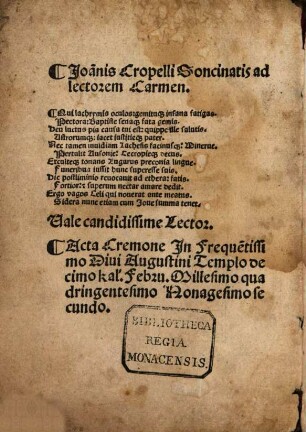 ¶ Joãnis Cropelli Soncinatis ad
lectorem Carmen.
¶ Qui lachrymis oculos: gemituqꝫ insana fatigas.
Pectora: Baptiste fata gemis.
Heu luctus pia causa tui est: quippe ille salutis.
Astrorumqꝫ: iacet iustitieqꝫ pater.
Nec tamen inuidiam Lachesis facinusqꝫ: Minerue.
Pertulit Ausonie: Cecropieqꝫ decus.
Ercultqꝫ tonans Augurus preconia lingue.
Funeribus iussit hunc superesse suis.
Die postliminio reuocauit ad ethera: fatis.
Fortior: superum nectar amare dedit.
Ergo vagos Celi qui nouerat ante meatus.
Sidera nunc etiam cum Joue summa tenet.
Vale candidissime Lector.
¶ Acta Cremone In Frequẽtissi
mo Diui Augustini Templo de
cimo kal. Febru. Millesimo qua
dringentesimo Nonagesimo se
cundo.
BIBLIOTHECA
REGIA
MONACENSIS.